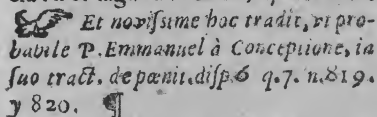 ☞ Et novissime hoc tradit, vt pro-
babile P. Emmanuel à Conceptione, in
suo tract. de pœnit. disp. 6 q. 7. n. 819.
y 820. ¶